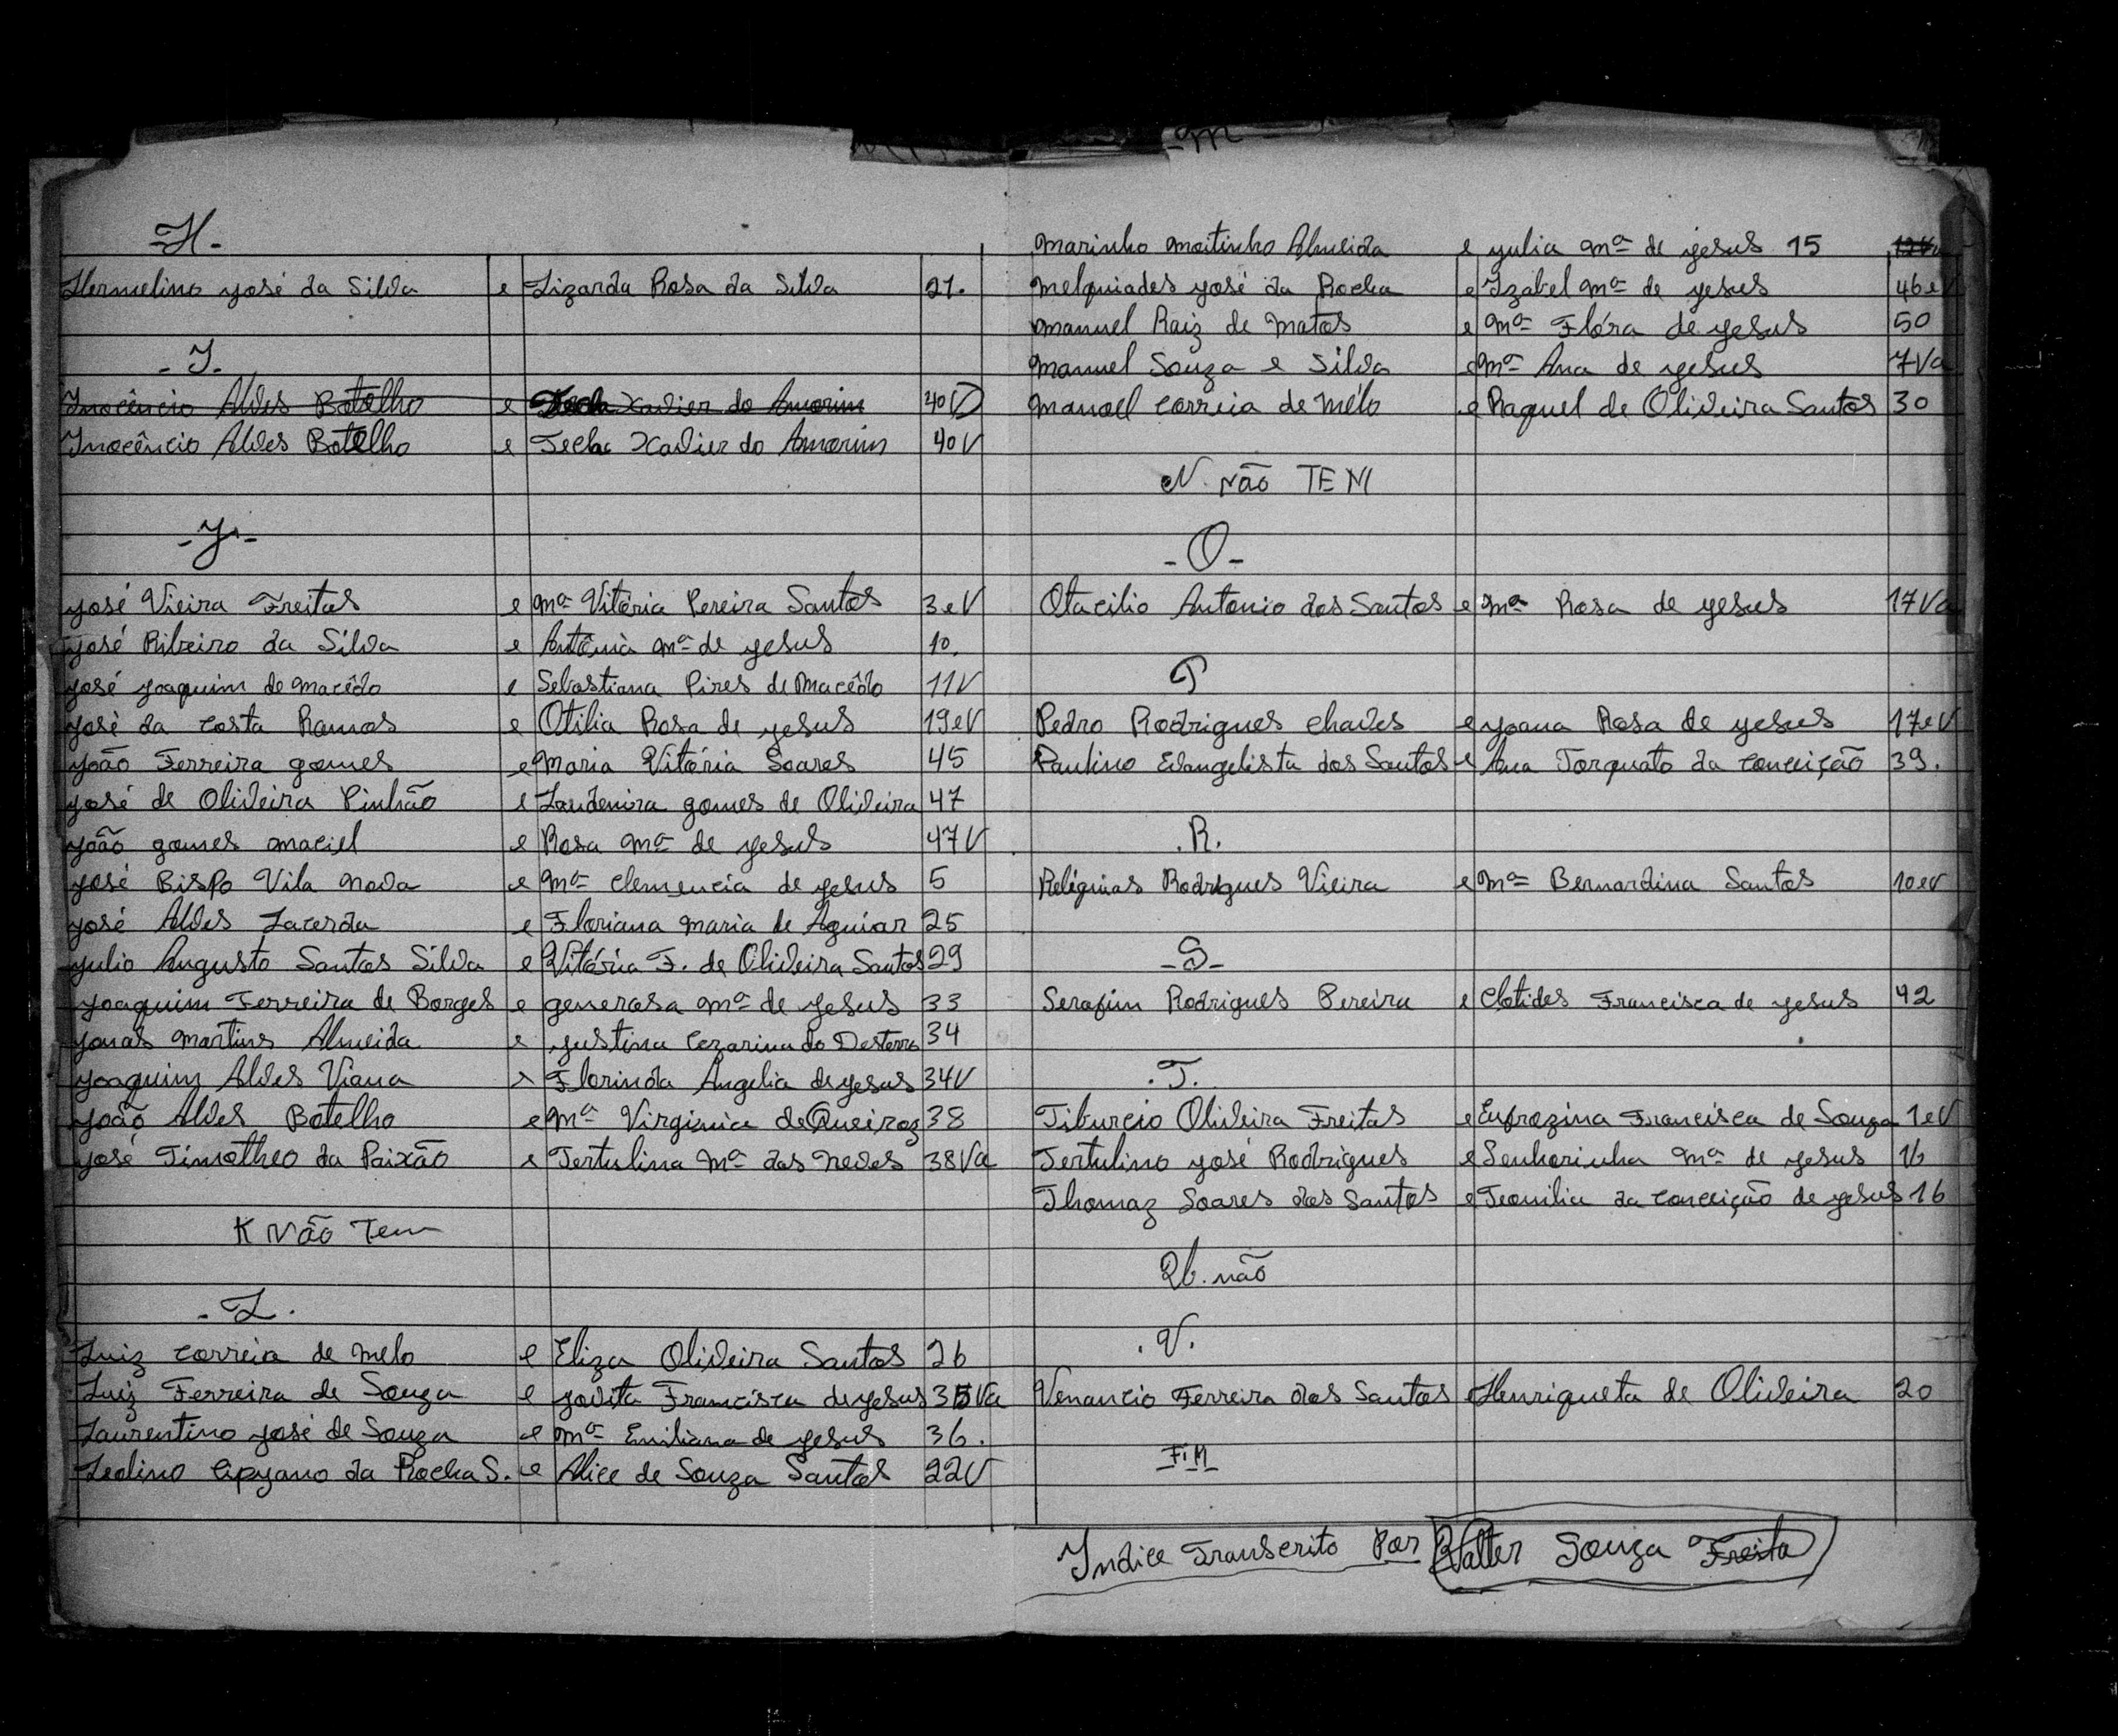 -H-
Hermelino José da Silva e Lizarda Rosa da Silva 21.
-I-
Inocêncio Alves Botelho e Tecla Xavier do Amorim 40V
Inocêncio Alves Botelho e Tecla Xavier do Amorim 40V
-J-
José Vieira Freitas e Mª Vitória Pereira Santos 3eV
José Ribeiro da Silva e Antônia Mª de Jesus 10.
José Joaquim de Macêdo e Sebastiana Pires de Macêdo 11V
José da Costa Ramos e Otilia Rosa de Jesus 19eV
João Ferreira Gomes e Maria Vitória Soares 45
José de Oliveira Pinhão e Laudenira Gomes de Oliveira 47
João Gomes Maciel e Rosa Mª de Jesus 47V
José Bispo Vila Nova e Mª Clemencia de Jesus 5
José Alves Lacerda e Floriana Maria de Aguiar 25
Julio Augusto Santos Silva e Vitória F. de Oliveira Santos 29
Joaquim Ferreira de Borges e Generosa Mª de Jesus 33
Jonas Martins Almeida e Justina Cezarina do Desterro 34
Joaquim Alves Viana e Florinda Angelia de Jesus 34V
João Alves Botelho e Mª Virginia de Queiroz 38
José Timotheo da Paixão e Tertulina Mª das Neves 38Va
K Não Tem
-L.
Luiz Correia de Melo e Eliza Oliveira Santos 26
Luiz Ferreira de Souza e Jovita Francisca de Jesus 35Va
Laurentino José de Souza e Mª Emiliana de Jesus 36.
Leolino Cipyano da Rocha S. e Alice de Souza Santos 22V
-M-
Marinho Moitinho Almeida e Julia Mª de Jesus 15
Melquiades José da Rocha e Izabel Mª de Jesus 46eV
Manuel Raiz de Matos e Mª Flóra de Jesus 50
Manuel Souza e Silva e Mª Ana de Jesus 7Va
Manoel Correia de Mélo e Raquel de Oliveira Santos 30
N. Não TEM
-O-
Otacilio Antonio dos Santos e Mª Rosa de Jesus 17Va
P
Pedro Rodrigues Chaves e Joana Rosa de Jesus 17eV
Paulino Evangelista dos Santos e Ana Torquato da Conceição 39.
.R.
Religuias Rodrigues Vieira e Mª Bernardina Santos 10eV
-S-
Serafim Rodrigues Pereira e Clotides Francisca de Jesus 42
.T.
Tiburcio Oliveira Freitas e Eufrozina Francisca de Souza 1eV
Tertulino José Rodrigues e Senhorinha Mª de Jesus 16
Thomaz Soares dos Santos e Teonilia da Conceição de Jesus 16
U. não
.V.
Venancio Ferreira dos Santos e Henriqueta de Oliveira 20
FiM
Indice Transcrito Por Valter Souza Freita